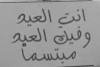 انت العيد
وفيك العيد
مبتسما